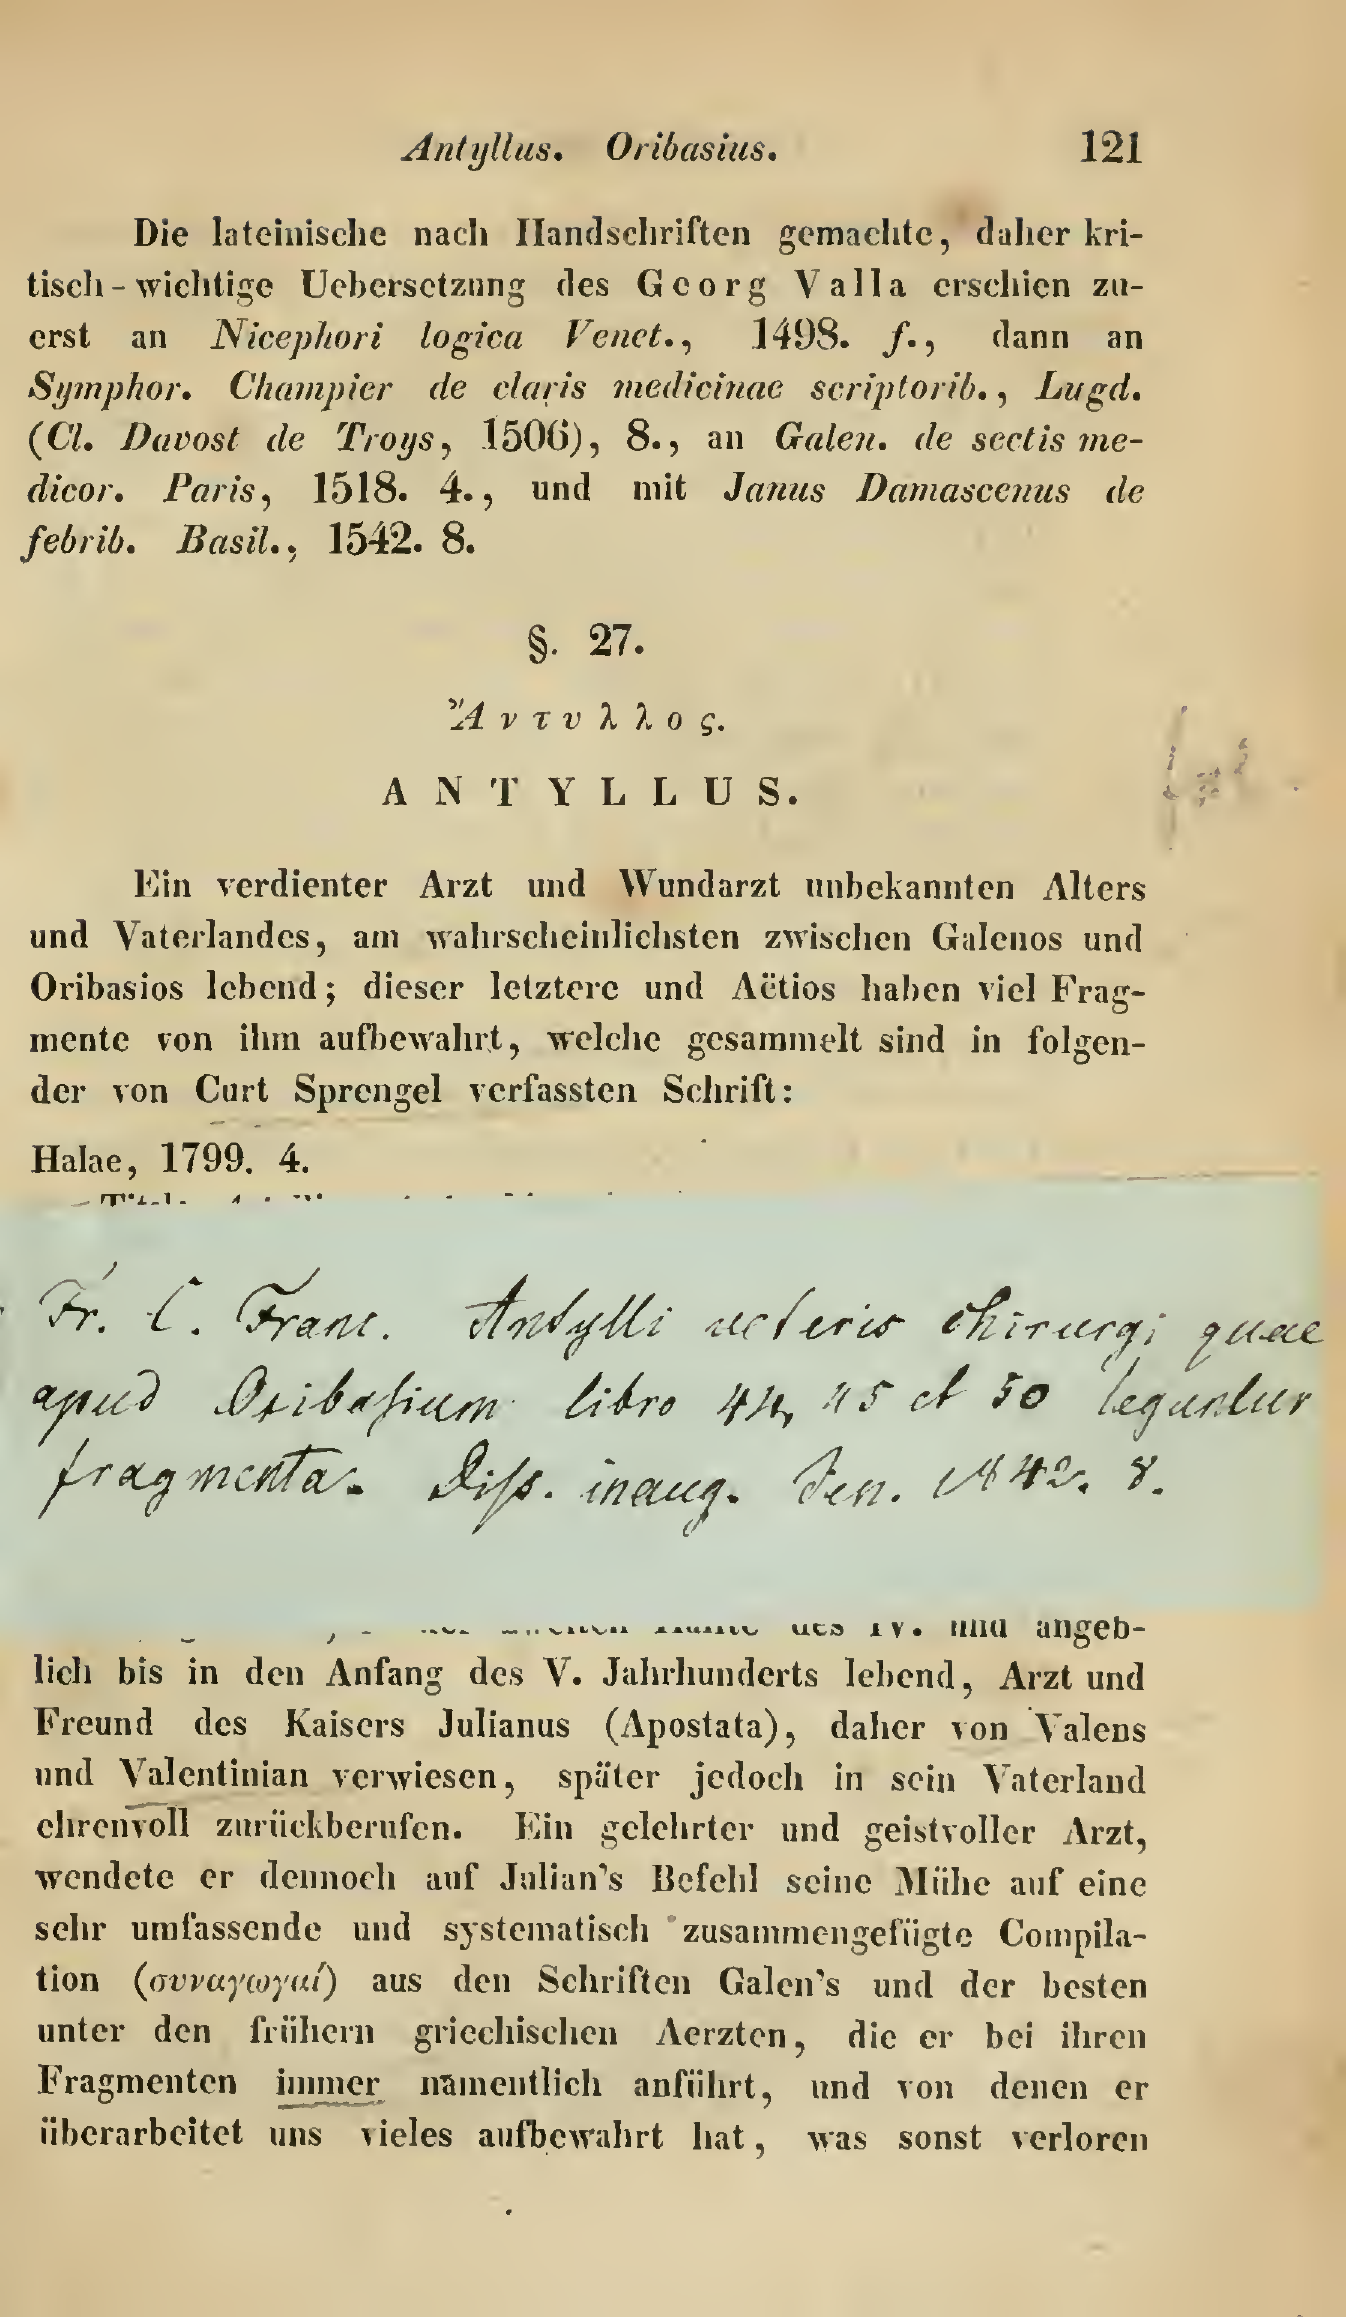 Antyllus. Oribasius. 121
Die lateinische nach Handschriften gemachte, daher kri-
tisch-wichtige Uebersetzung des Georg Valla erschien zu-
erst an Nicephori logica Venet., 1498. f., dann an
Symphor. Champier de claris medicinae scriptorib., Lugd.
(Cl. Davost de Troys, 1506), 8., an Galen. de sectis me-
dicor. Paris, 1518. 4., und mit Janus Damascenus de
febrib. Basil., 1542. 8.
§. 27.
Ἄντυλλος.
ANTYLLUS.
Ein verdienter Arzt und Wundarzt unbekannten Alters
und Vaterlandes, am wahrscheinlichsten zwischen Galenos und
Oribasios lebend; dieser letztere und Aëtios haben viel Frag-
mente von ihm aufbewahrt, welche gesammelt sind in folgen-
der von Curt Sprengel verfassten Schrift:
Halae, 1799. 4.
Fr. C. Franc. Antylli veteris chirurgi quae
apud Oribasium libro 44, 45 et 50 leguntur
fragmenta. Diss. inaug. Jen. 1842. 8.
des IV. und angeb-
lich bis in den Anfang des V. Jahrhunderts lebend, Arzt und
Freund des Kaisers Julianus (Apostata), daher von Valens
und Valentinian verwiesen, später jedoch in sein Vaterland
ehrenvoll zurückberufen. Ein gelehrter und geistvoller Arzt,
wendete er dennoch auf Julian's Befehl seine Mühe auf eine
sehr umfassende und systematisch zusammengefügte Compila-
tion (συναγωγαί) aus den Schriften Galen's und der besten
unter den frühern griechischen Aerzten, die er bei ihren
Fragmenten immer namentlich anführt, und von denen er
überarbeitet uns vieles aufbewahrt hat, was sonst verloren